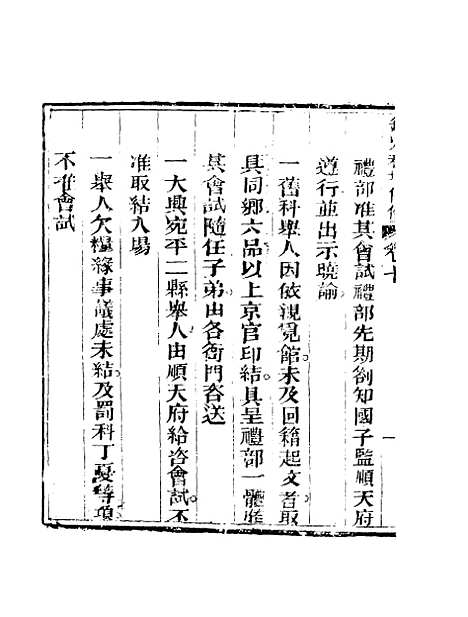 禮部准其會試禮部先期劄知國子監順天府
遵行並出示曉諭
一舊科舉人因依親覓館未及回籍起文者取
具同鄉六品以上京官印結具呈禮部一體准
其會試隨任子弟由各衙門咨送
一大興宛平二縣舉人由順天府給咨會試不
准取結入場
一舉人欠糧緣事議處未結及罰科丁憂等項
不准會試